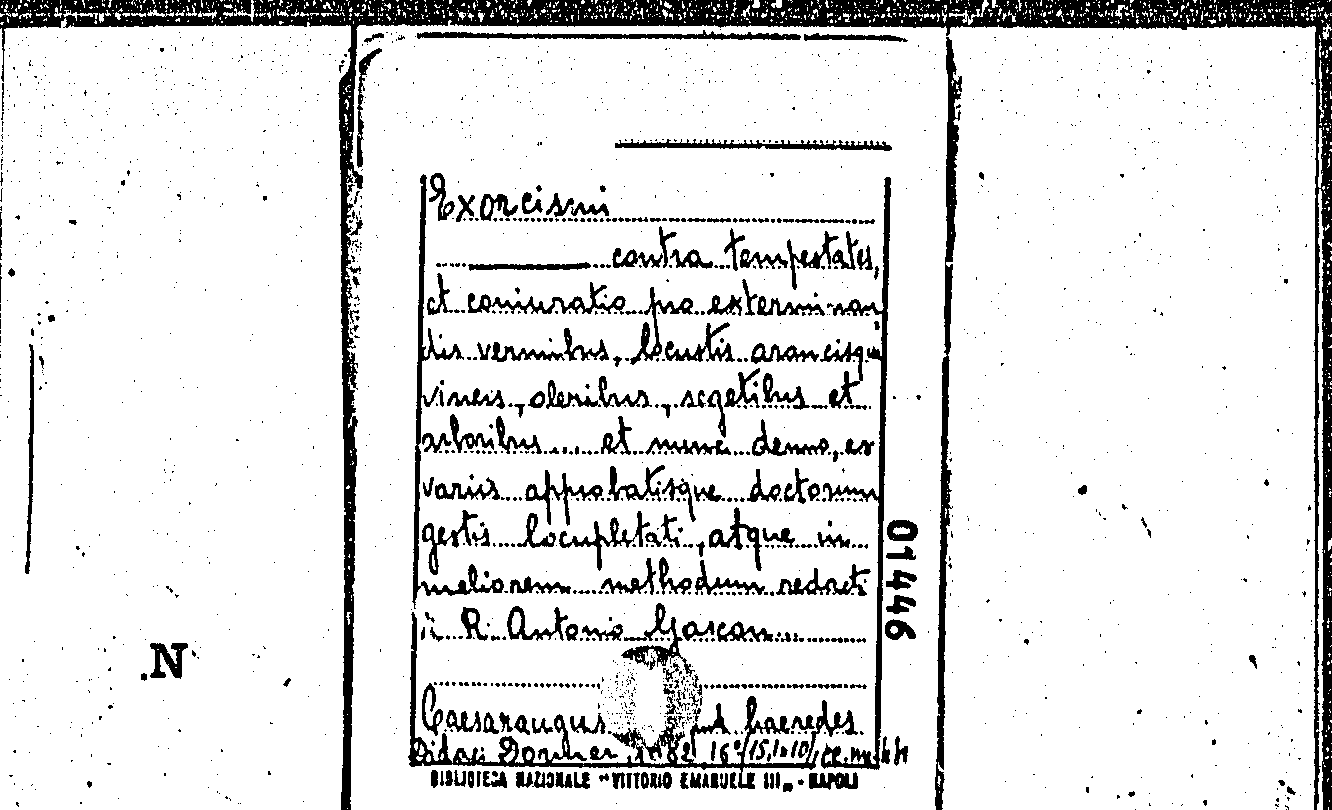 Exorcismi
contra tempestates,
et coniuratio pro exterminan
dis vermibus, locustis arancisque
vineis, oleribus, segetibus et
arboribus ... et nunc denuo, ex
variis approbatisque doctorum
gestis locupletati, atque in
meliorem methodum redacti
R. Antonio Gascon...
Caesaraugus haeredes
Didaci Dormer,
BIBLIOTECA NAZIONALE "VITTORIO EMANUELE III„ - NAPOLI
01446
.N